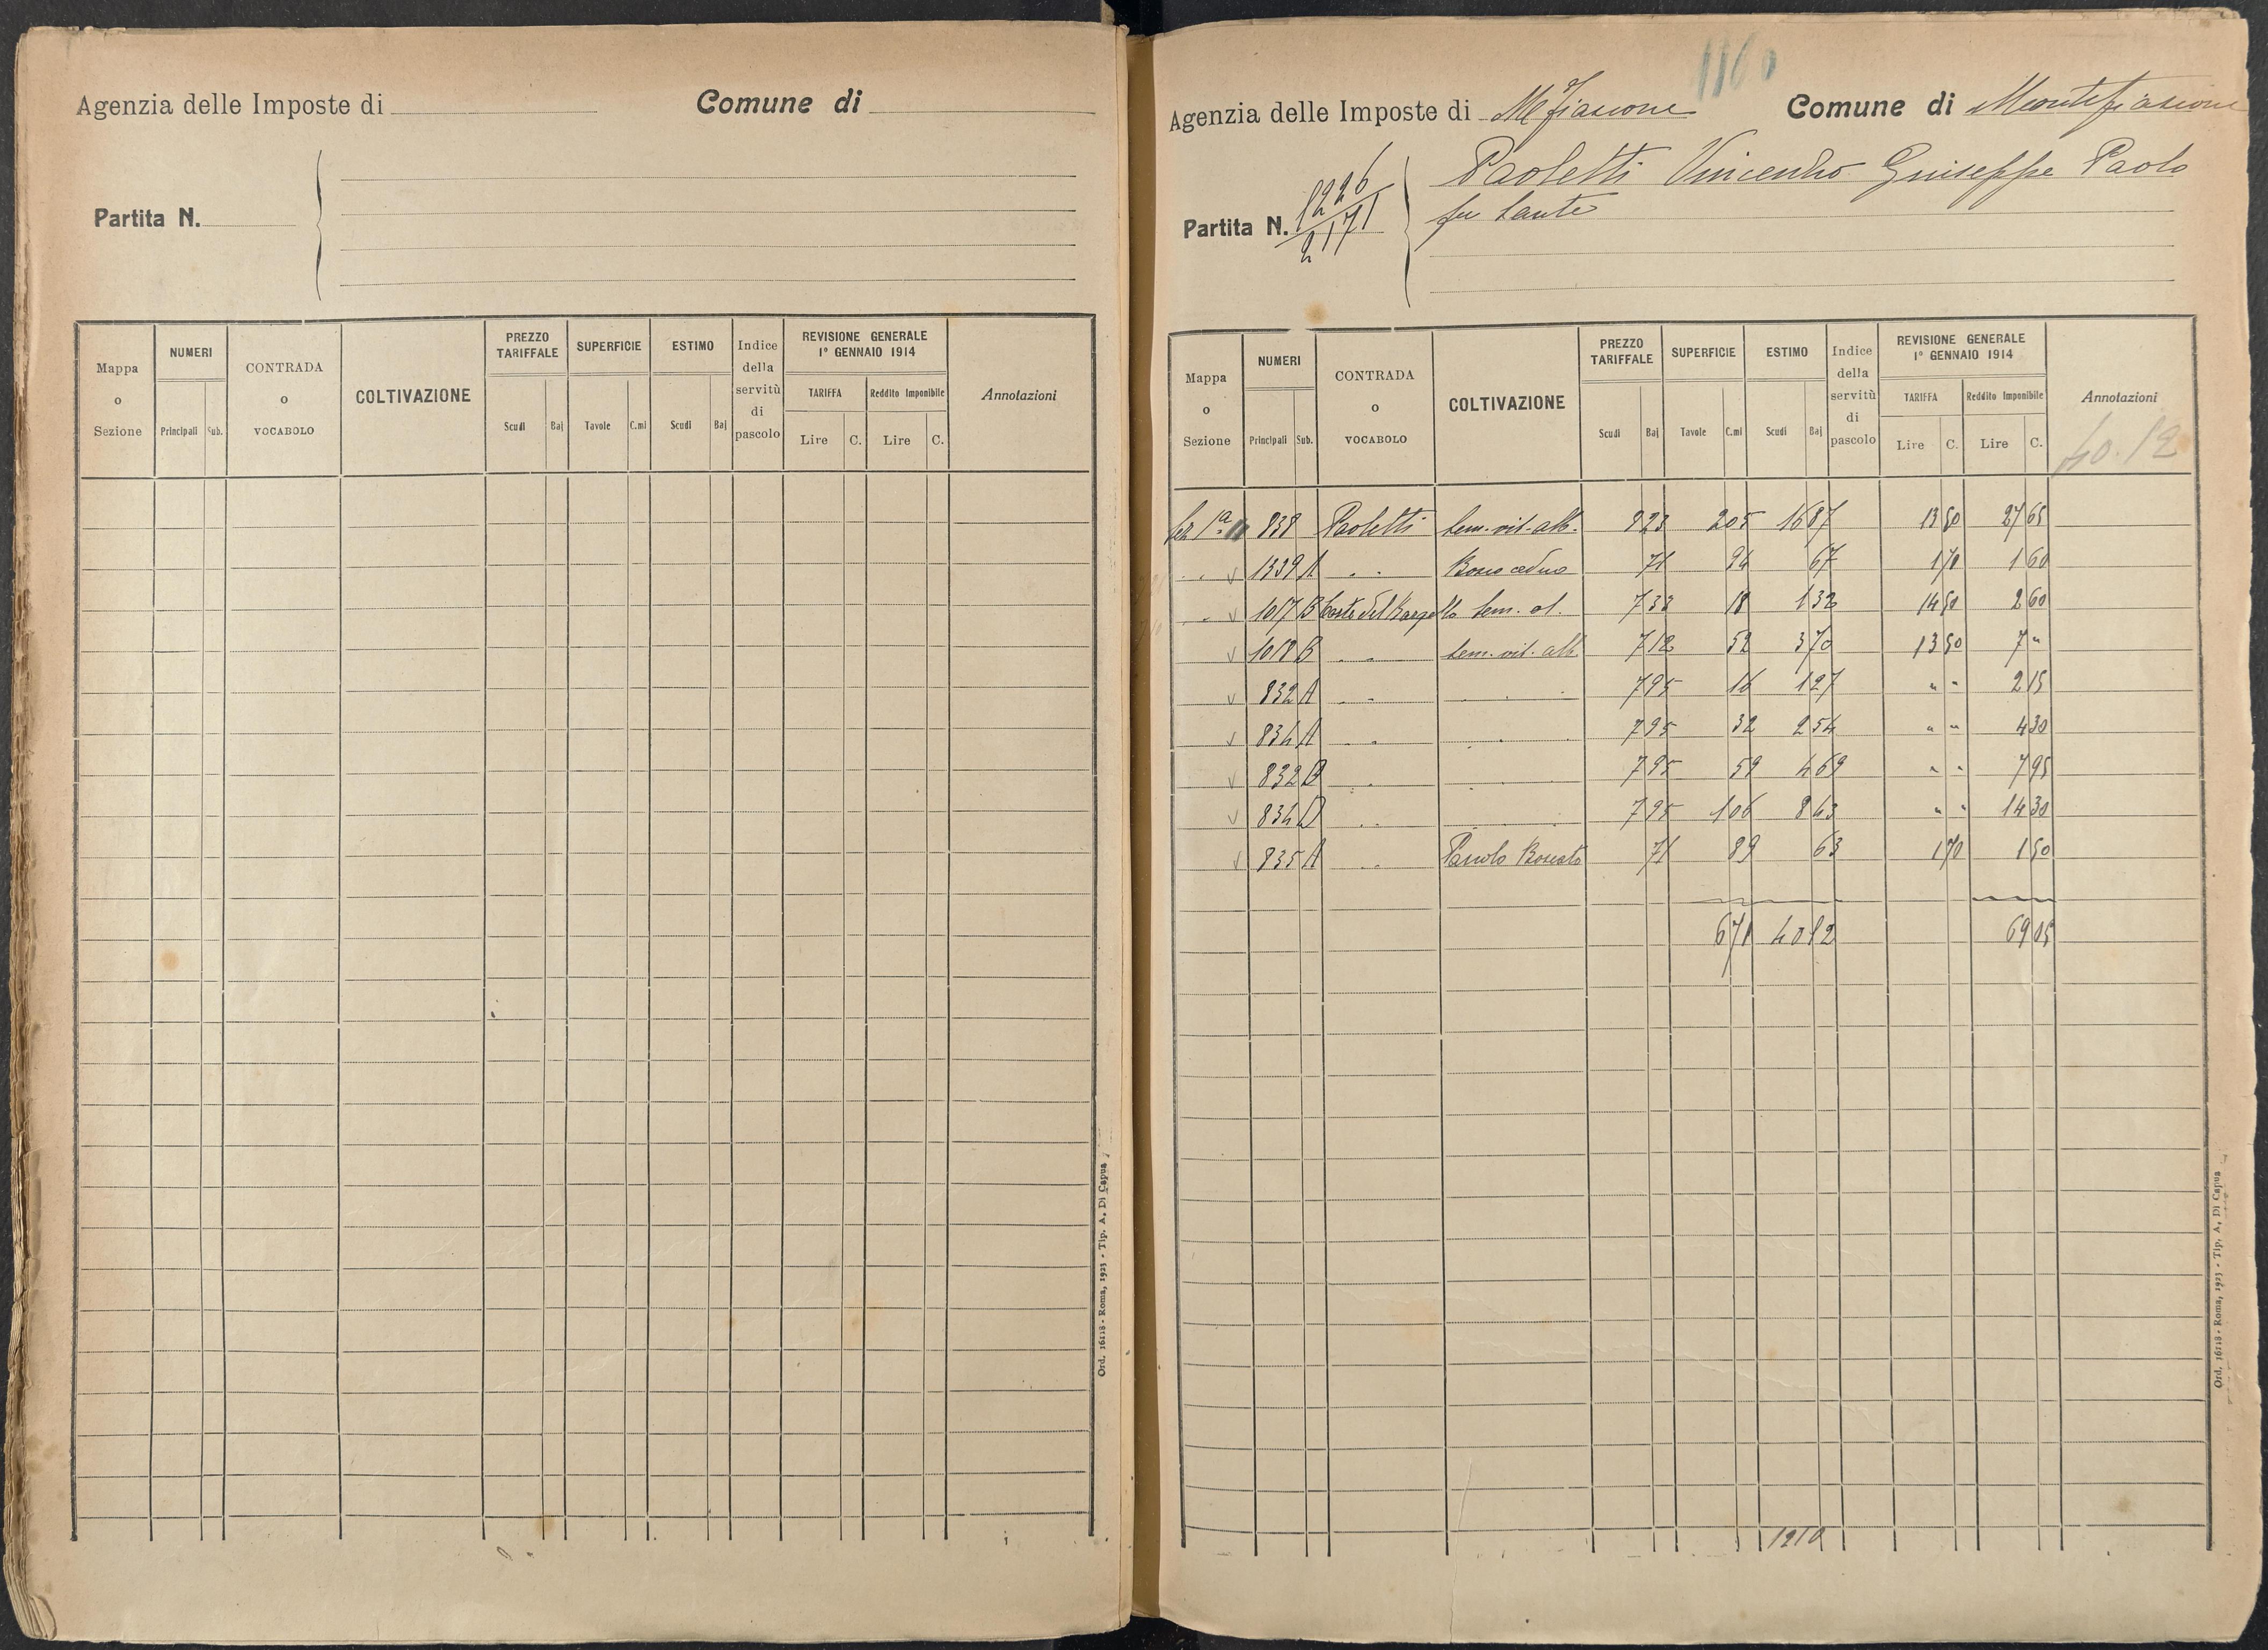 Agenzia delle Imposte di
Comune di
Partita N.
Mappa o Sezione
NUMERI
Principali Sub.
CONTRADA o VOCABOLO
COLTIVAZIONE
PREZZO TARIFFALE
Scudi Baj
SUPERFICIE
Tavole C.mi
ESTIMO
Scudi Baj
Indice della servitù di pascolo
REVISIONE GENERALE
1° GENNAIO 1914
TARIFFA Reddito Imponibile
Lire C. Lire C.
Annotazioni
Ord. 16118 - Roma, 1923 - Tip. A. Di Capua
1160
Agenzia delle Imposte di M Fiascone Comune di Montefiascone
Paoletti Vincenzo Giuseppe Paolo
Partita N. 1226 / 2171
fu Sante
Mappa o Sezione
NUMERI
Principali Sub.
CONTRADA o VOCABOLO
COLTIVAZIONE
PREZZO TARIFFALE
Scudi Baj
SUPERFICIE
Tavole C.mi
ESTIMO
Scudi Baj
Indice della servitù di pascolo
REVISIONE GENERALE
1° GENNAIO 1914
TARIFFA Reddito Imponibile
Lire C. Lire C.
Annotazioni
40.12
Sez 1a 838 Paoletti Sem. vit. alb. 823 205 1687 13 50 27 65
" " v 1339 A " " Bosco ceduo 71 94 67 1 70 1 60
" " v 1017 B Costa del Bargello Sem. ol. 733 18 132 14 50 2 60
v 1018 B " " Sem. vit. alb. 712 52 370 13 50 7 "
v 832 A " " " " 795 16 127 " " 2 15
v 834 A " " " " 795 32 254 " " 4 30
v 832 B " " " 795 59 469 " " 7 95
v 834 D " " " 795 106 843 " " 14 30
v 835 A " " Pascolo Boscato 71 89 63 1 70 1 50
671 4012 69 05
1210
Ord. 16118 - Roma, 1923 - Tip. A. Di Capua